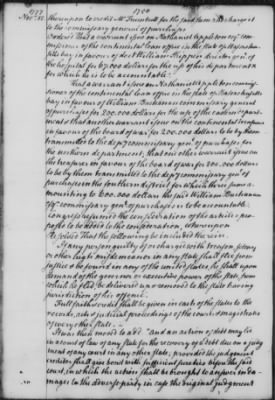 1777
1700
Nov. 12.
thereupon to credit Mr. for the said sum & the charge it
to the commissary general of purchases
Ordered That a warrant issue on Nathaniel Appleton esqr. com-
missioner of the continental loan office in the state of Massachu-
setts bay in favour of
the hospital for 67,000 dollars for the use of his department
for which he is to be accountable.
That a warrant issue on Nathaniel Appleton commis-
sioner of the continental loan office in the state of Massachusetts
bay in favour of William Buchanan commissary general
of purchases for 200,000 dollars for the use of the eastern depart-
ment & that another warrant issue on the continental treasurer
in favour of the board of war for 200.000 dollars to be by them
transmitted to the depy. commissary genl. of purchases for
the northern department; that one other warrant issue on
the treasurer in favour of the board of war for 200,000 dollars
to be by them transmitted to the depy. commissary genl. of
purchases in the southern district for which three sums a-
mounting to 600.000 dollars the said William Buchanan
Esqr. commissary genl. of purchases is to be accountable.
Congress resumed the consideration of the articles pro-
posed to be added to the confederation, whereupon
Resolved That the following be added
If any person guilty of or charged with treason, felony
or other high misdemeanor in any state shall flee from
justice & be found in any of the united states, he shall upon
demand of the governor or executive power of the state from
which he fled, be delivered up & removed to the state having
jurisdiction of his offence.
Full faith & credit shall be given in each of these states to the
records, acts & judicial proceedings of the courts & magistrates
of every other state.
It was then moved to add "and an action of debt may lie
in a court of law of any state for the recovery of a debt due on a judg-
ment of any court in any other state; provided the judgment
creditor shall give bond with sufficient sureties before the said
court, in which the action shall be brought to answer in da-
mages to the adverse party in case the original judgment